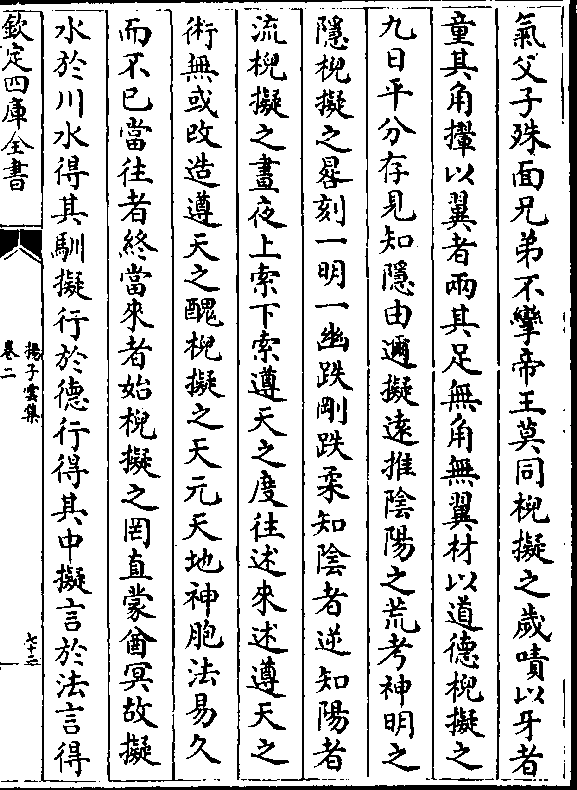 氣父子殊面兄弟不孿帝王莫同棿擬之歲嘖以牙者
童其角撵以翼者兩其足無角無翼材以道德棿擬之
九日平分存見知隱由邇擬遠推陰陽之荒考神明之
隱棿擬之晷刻一明一幽跌剛跌柔知陰者逆知陽者
流棿擬之晝夜上索下索遵天之度往述來述遵天之
術無或改造遵天之醜棿擬之天元天地神胞法易久
而不已當往者終當來者始棿擬之罔直蒙酋冥故擬
水於川水得其馴擬行於德行得其中擬言於法言得
欽定四庫全書
揚子雲集
卷二
七十二